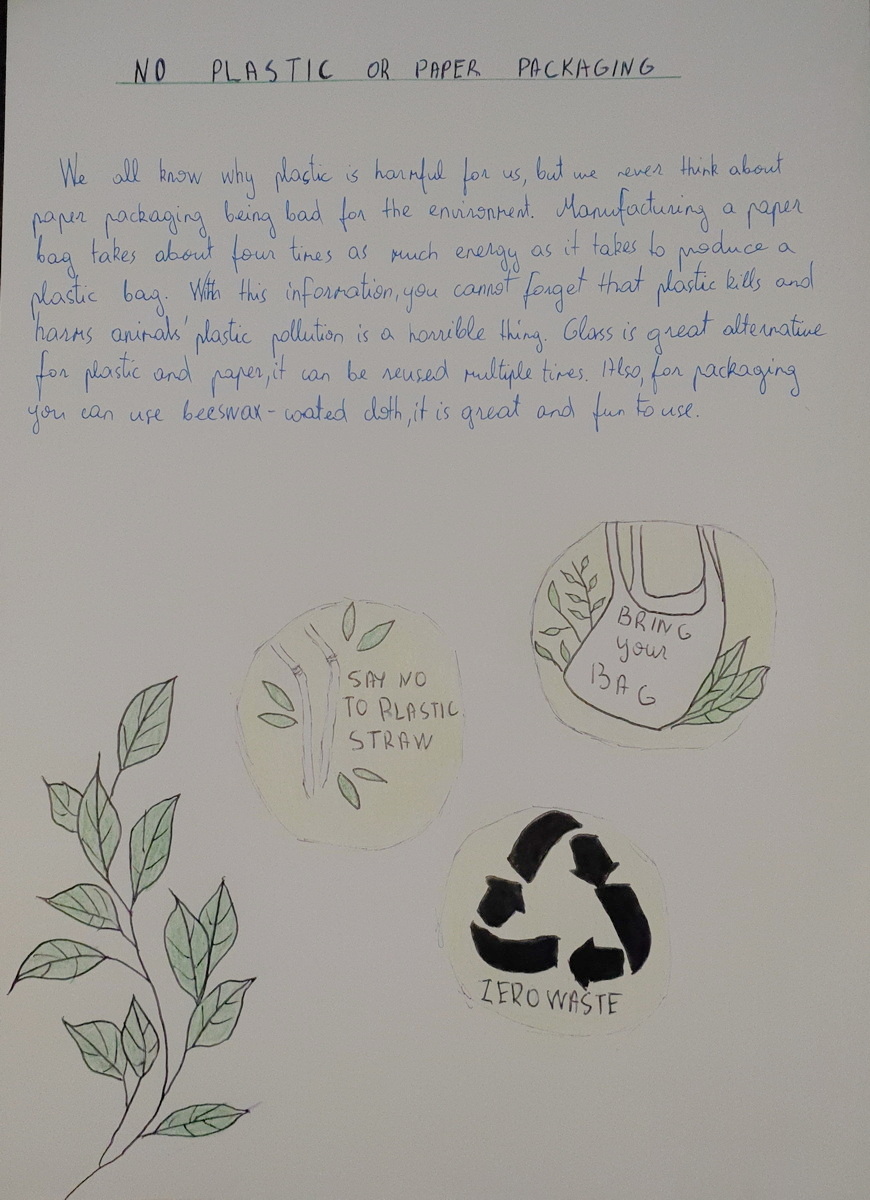 NO PLASTIC OR PAPER PACKAGING
We all know why plastic is harmful for us, but we never think about
paper packaging being bad for the environment. Manufacturing a paper
bag takes about four times as much energy as it takes to produce a
plastic bag. With this information, you cannot forget that plastic kills and
harms animals' plastic pollution is a horrible thing. Glass is great alternative
for plastic and paper, it can be reused multiple times. Also, for packaging
you can use beeswax-coated cloth, it is great and fun to use.
BRING
your
BAG
SAY NO
TO PLASTIC
STRAW
ZERO WASTE